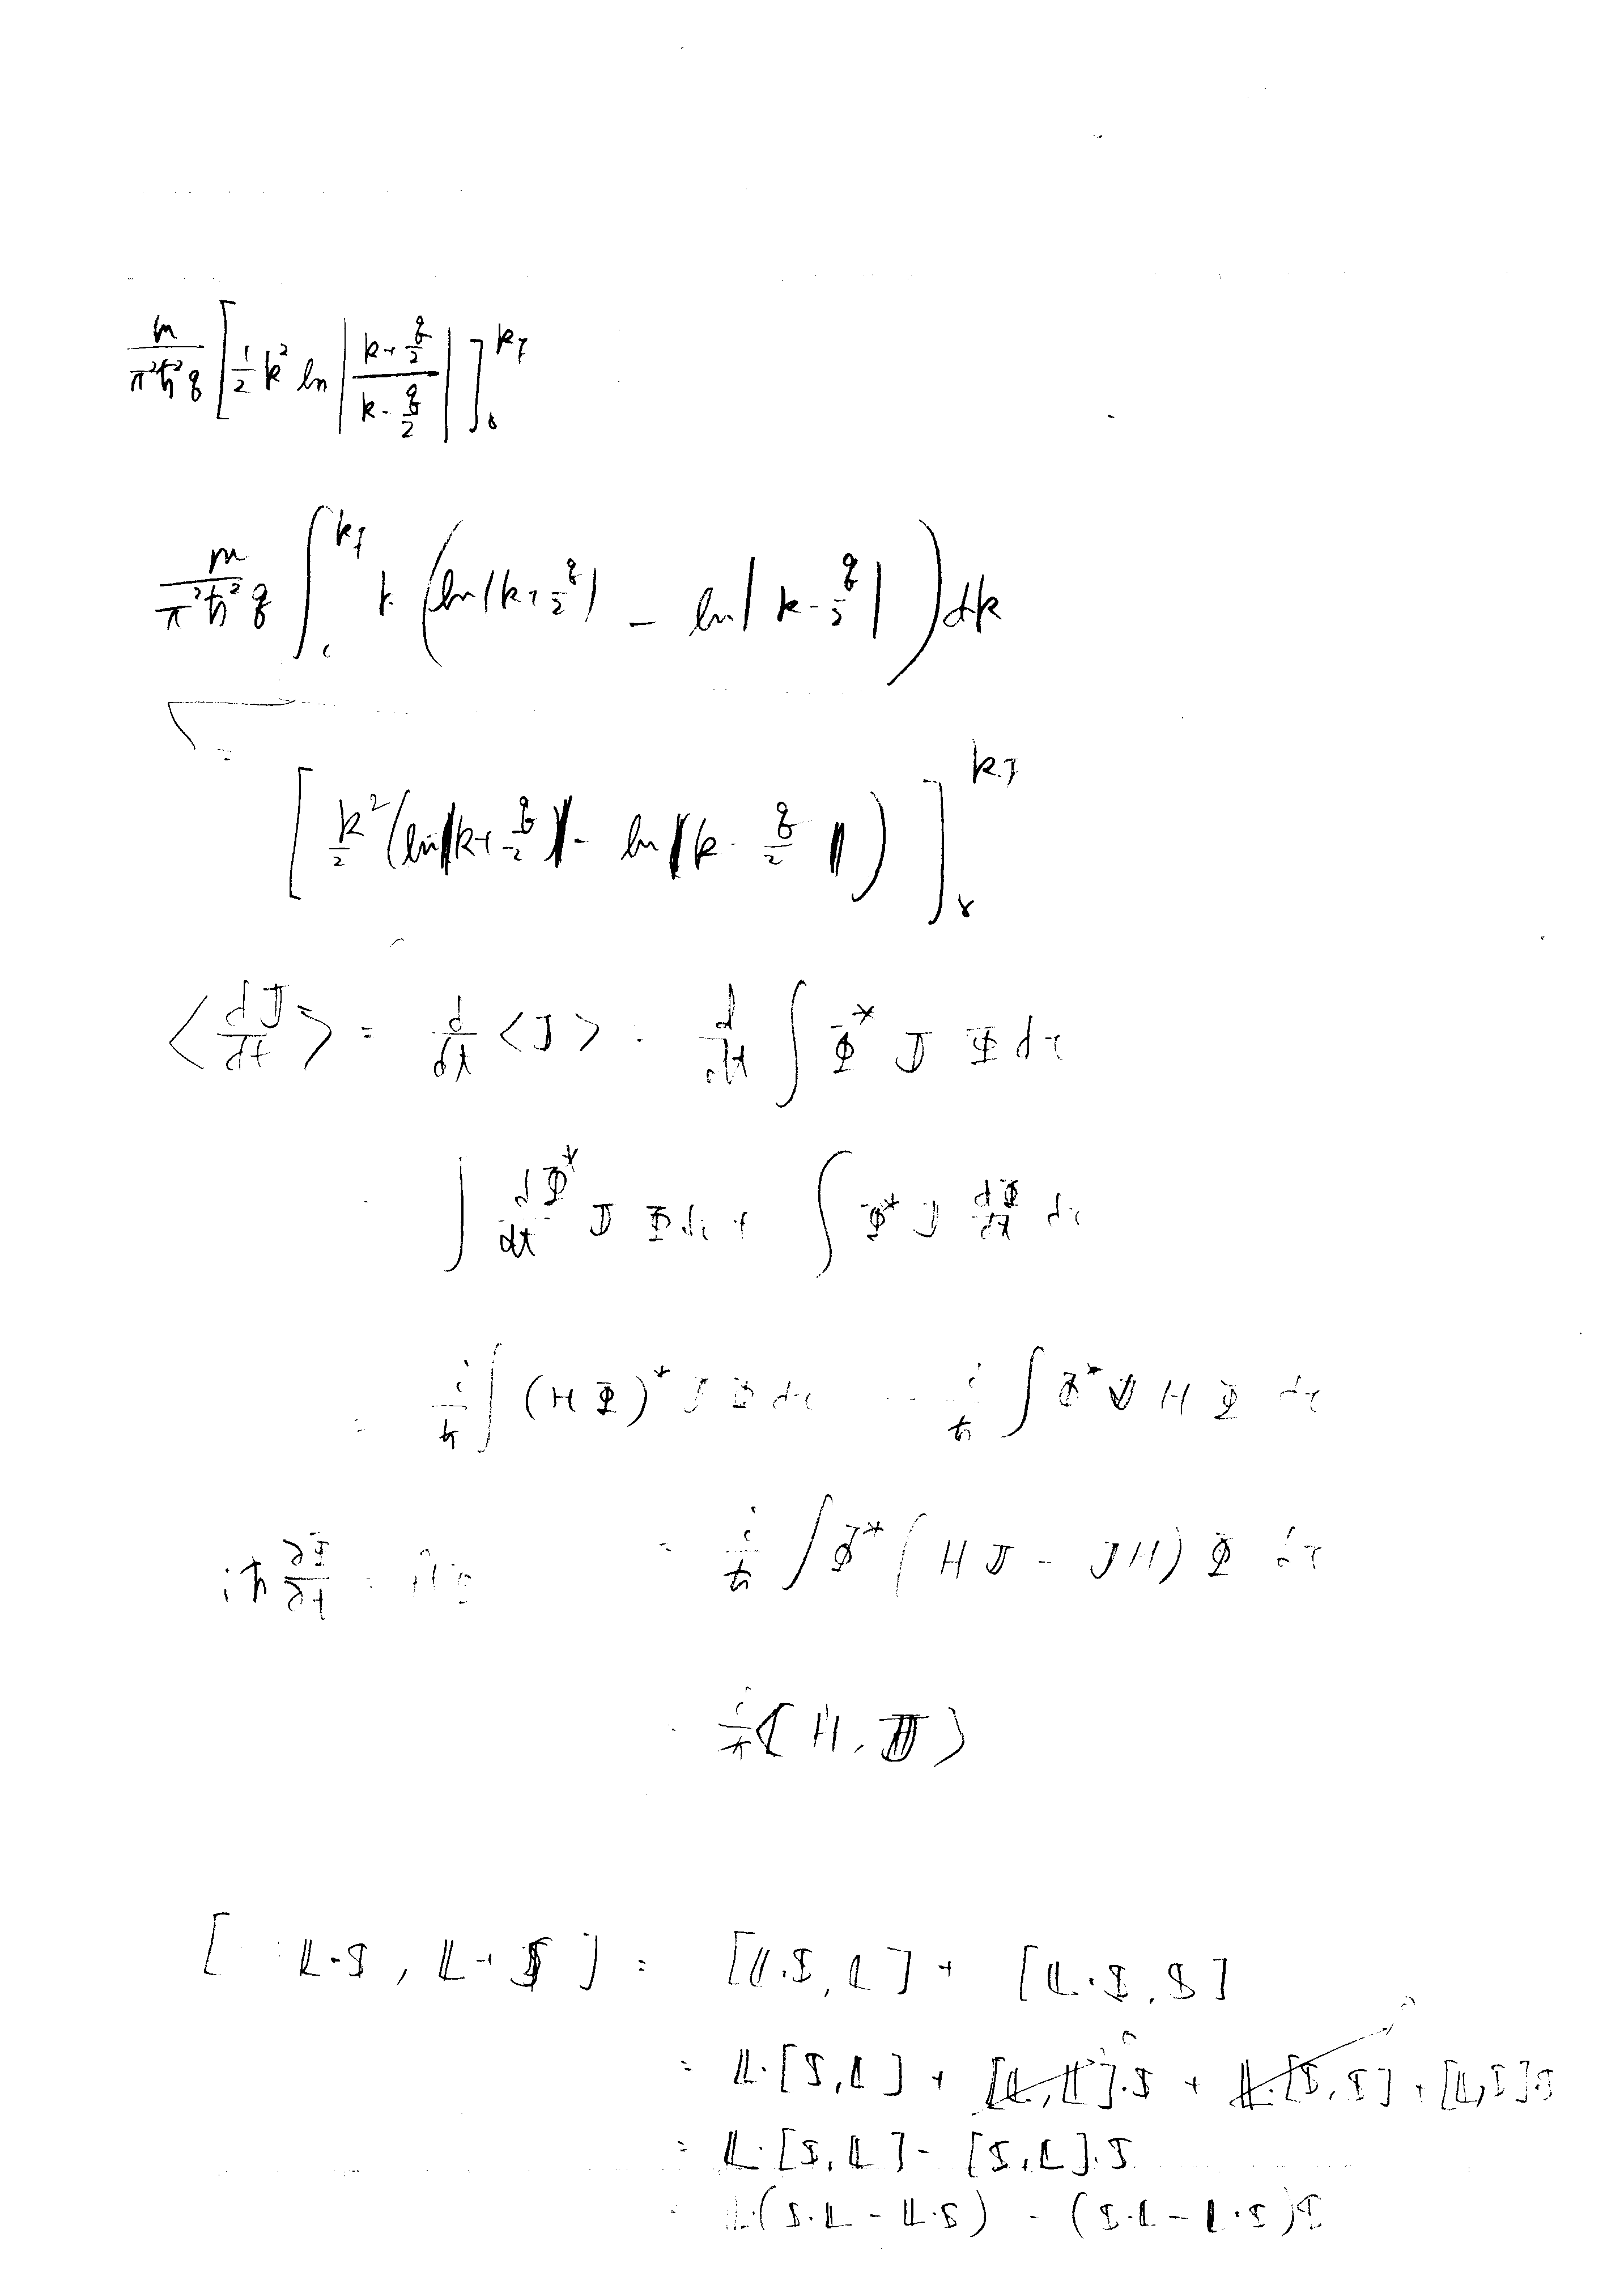 m/(π²ħ²q) [ 1/2 k² ln | (k+q/2)/(k-q/2) | ]₀^{k_f}
m/(π²ħ²q) ∫₀^{k_f} k ( ln|k+q/2| - ln|k-q/2| ) dk
=
[ k²/2 ( ln|k+q/2| - ln|k-q/2| ) ]₀^{k_f}
⟨d𝕁/dt⟩ = d/dt ⟨𝕁⟩ = d/dt ∫ Φ* 𝕁 Φ dτ
= ∫ dΦ*/dt 𝕁 Φ dτ + ∫ Φ* 𝕁 dΦ/dt dτ
= i/ħ ∫ (HΦ)* 𝕁 Φ dτ - i/ħ ∫ Φ* 𝕁 H Φ dτ
iħ ∂Φ/∂t = HΦ = i/ħ ∫ Φ* ( H𝕁 - 𝕁H ) Φ dτ
= i/ħ ⟨ H, 𝕁 ⟩
[ 𝕃·𝕊, 𝕃+𝕊 ] = [𝕃·𝕊, 𝕃] + [𝕃·𝕊, 𝕊]
= 𝕃·[𝕊,𝕃] + [𝕃,𝕃]·𝕊 + 𝕃·[𝕊,𝕊] + [𝕃,𝕊]·𝕊
= 𝕃·[𝕊,𝕃] - [𝕊,𝕃]·𝕊
= 𝕃·(𝕊·𝕃 - 𝕃·𝕊) - (𝕊·𝕃 - 𝕃·𝕊)𝕊